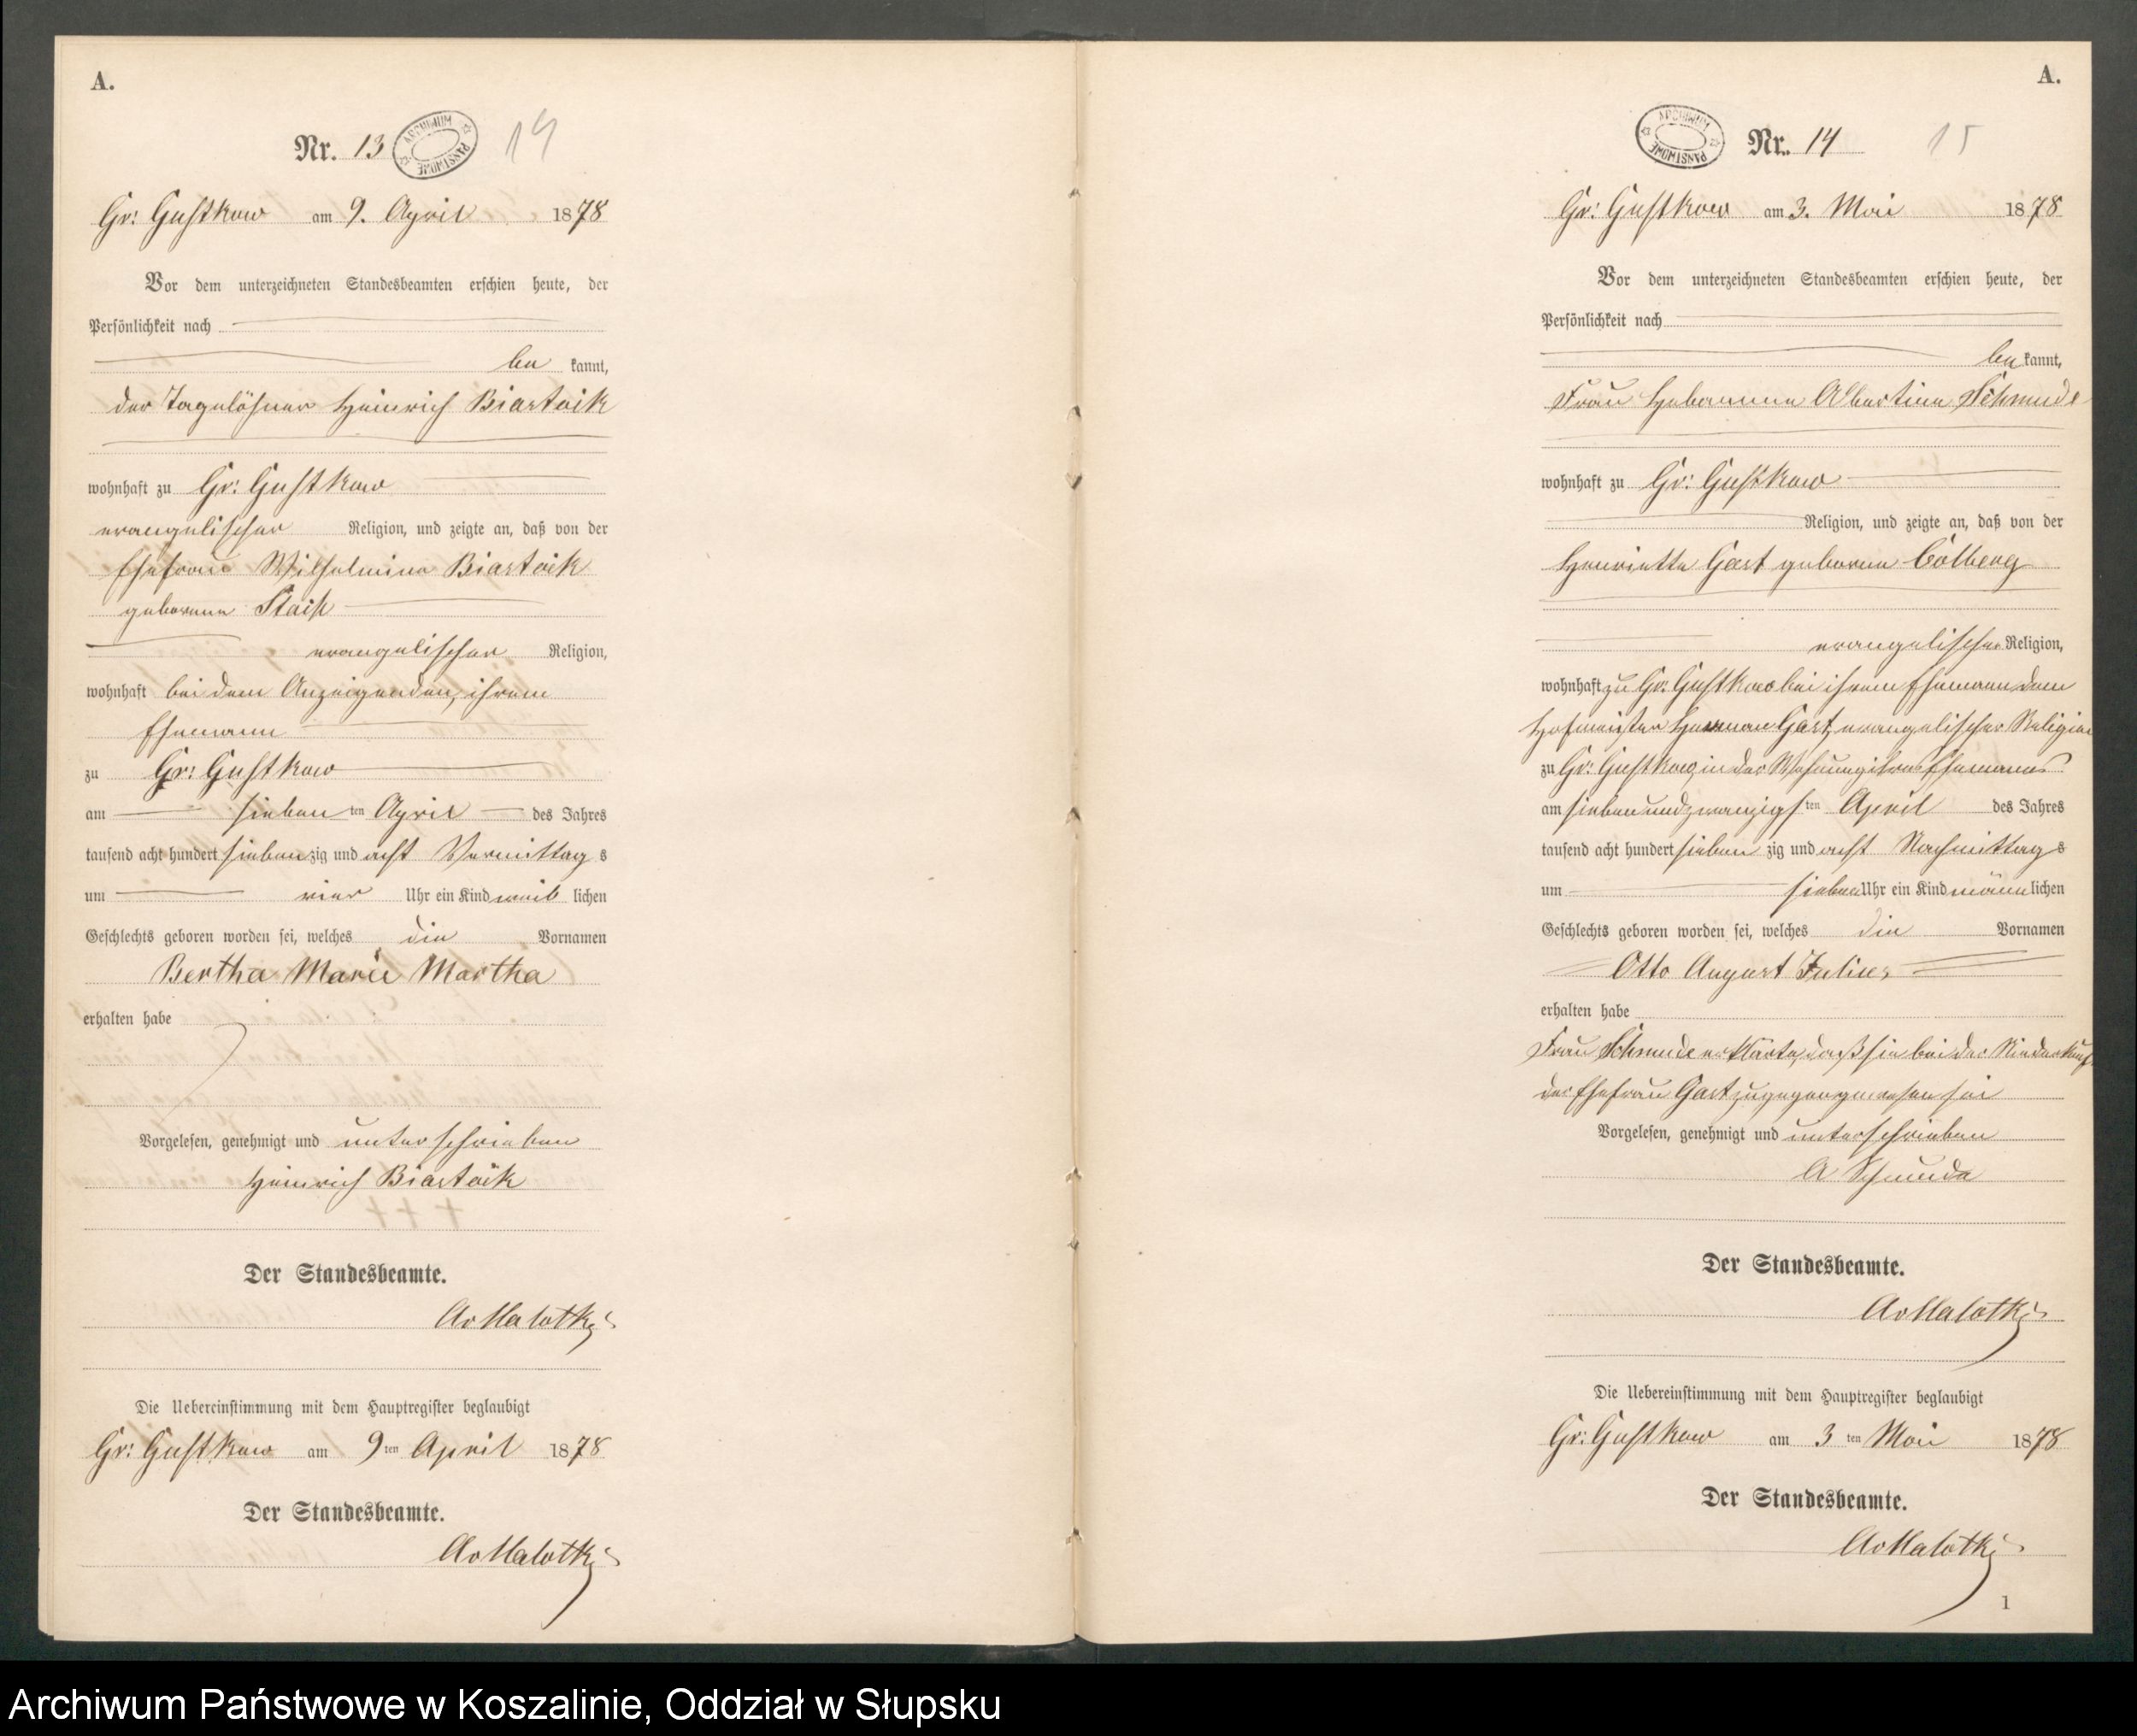 A.
Nr. 13
ARCHIWUM PAŃSTWOWE
14
Gr: Gustkow am 9. April 1878
Vor dem unterzeichneten Standesbeamten erschien heute, der
Persönlichkeit nach
be kannt,
der Tagelöhner Heinrich Biastoik
wohnhaft zu Gr: Gustkow
evangelischer Religion, und zeigte an, daß von der
Ehefrau Wilhelmine Biastoik
geborene
evangelischer Religion,
wohnhaft bei dem Anzeigenden, ihrem
Ehemann
zu Gr: Gustkow
am sieben ten April des Jahres
tausend acht hundert sieben zig und acht Vormittag s
um vier Uhr ein Kind weib lichen
Geschlechts geboren worden sei, welches die Vornamen
Bertha Marie Martha
erhalten habe
Vorgelesen, genehmigt und unterschrieben
Heinrich Biastoik
Der Standesbeamte.
AvMalotki
Die Uebereinstimmung mit dem Hauptregister beglaubigt
Gr: Gustkow am 9 ten April 1878
Der Standesbeamte.
AvMalotki
A.
ARCHIWUM PAŃSTWOWE
Nr. 14
15
Gr: Gustkow am 3. Mai 1878
Vor dem unterzeichneten Standesbeamten erschien heute, der
Persönlichkeit nach
be kannt,
Frau Hebamme Albertine Schmude
wohnhaft zu Gr: Gustkow
Religion, und zeigte an, daß von der
Henriette Gast geborene Cölberg
evangelischer Religion,
wohnhaft zu Gr: Gustkow bei ihrem Ehemann dem
Hofmeister Herman Gast, evangelischer Religion
zu Gr: Gustkow, in der Wohnung ihres Ehemanns
am siebenundzwanzigs ten April des Jahres
tausend acht hundert sieben zig und acht Nachmittag s
um sieben Uhr ein Kind männ lichen
Geschlechts geboren worden sei, welches die Vornamen
Otto August Julius
erhalten habe
Frau Schmude erklärte, daß sie bei der Niederkunft
der Ehefrau Gast zugegen gewesen sei
Vorgelesen, genehmigt und unterschrieben
A Schmude
Der Standesbeamte.
AvMalotki
Die Uebereinstimmung mit dem Hauptregister beglaubigt
Gr: Gustkow am 3 ten Mai 1878
Der Standesbeamte.
AvMalotki
1
Archiwum Państwowe w Koszalinie, Oddział w Słupsku